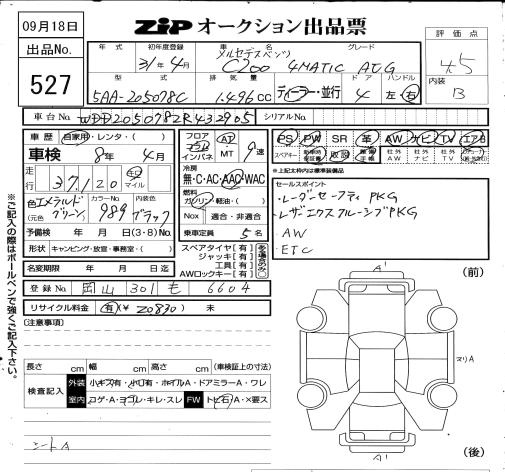 09月18日
ZIP オークション出品票
出品No.
527
評価点
4.5
内装
B
年式
初年度登録
31年4月
車名
メルセデスベンツ
C200 4MATIC AVG
グレード
型式
5AA-205078C
排気量
1.496cc
ディーラー・並行
ドア
4
ハンドル
左・右
車台No.
WDD2050782R432905
シリアルNo.
車歴
自家用・レンタ・( )
車検
8年 4月
走行
37,120
km
マイル
色
エメラルドグリーン
(元色 )
カラーNo.
989
内装色
ブラック
予備検 年 月 日(3・8)No.
形状
キャンピング・放宣・事務室・( )
名変期限 年 月 日迄
登録No.
岡山 301 も 6604
リサイクル料金
有(¥ 20830) 未
フロア
コラム
インパネ
AT
MT
9速
冷房
無・C・AC・AAC・WAC
燃料
ガソリン・軽油・( )
Nox
適合・非適合
乗車定員 5名
スペアタイヤ[有]
ジャッキ[有]
工具[有]
AWロックキー[有]
ある場合のみ○
PS PW SR 革 AW ナビ TV エアB
スペアキー
取説
社外AW
社外ナビ
社外TV
※上記太枠内は標準装備品
セールスポイント
・レーダーセーフティPKG
・レザーエクスクルーシブPKG
・AW
・ETC
[注意事項]
長さ cm 幅 cm 高さ cm (車検証上の寸法)
検査記入
外装
小キズ有・小凹有・ホイルA・ドアミラーA・ワレ
室内
コゲ・A・ヨゴレ・キレ・スレ
FW
トビ石A・×要ス
シートA
(前)
A'
マリA
A'
(後)
※ご記入の際はボールペンで強くご記入下さい。